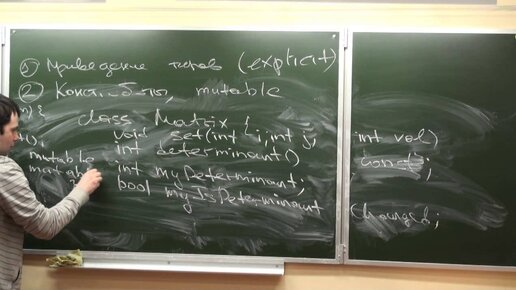 ① Приведение типов (explicit)
② Конст. объекты, mutable
) {
class Matrix {
void set(int i, int j, int val)
int determinant() const;
mutable int myDeterminant;
mutab bool myIsDeterminant Changed;